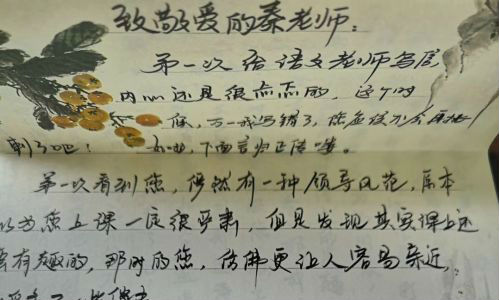 致敬爱的秦老师：
第一次给语文老师写信
内心还是很忐忑的，这个时
候，万一我写错了，您应该不会再
剩了吧！ 下面言归正传喽。
第一次看到您，俨然有一种领导风范，原本
以为您上课一定很严肃，但是发现其实课上还
有趣的，那时的您，仿佛更让人容易亲近，